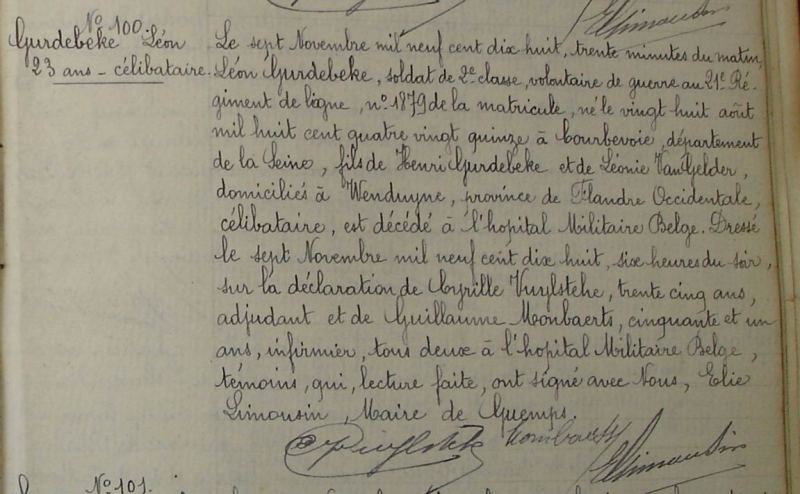 No 100.
Gurdebeke Léon
23 ans - célibataire.
Le sept Novembre mil neuf cent dix huit, trente minutes du matin,
Léon Gurdebeke, soldat de 2e classe, volontaire de guerre au 21e Ré-
giment de ligne, no 1879 de la matricule, né le vingt huit août
mil huit cent quatre vingt quinze à Courbevoie, département
de la Seine, fils de Henri Gurdebeke et de Léonie Van Gelder,
domiciliés à Wenduyne, province de Flandre Occidentale,
célibataire, est décédé à l'hopital Militaire Belge. Dressé
le sept Novembre mil neuf cent dix huit, six heures du soir,
sur la déclaration de Cyrille Vuylsteke, trente cinq ans,
adjudant et de Guillaume Monbaerts, cinquante et un
ans, infirmier, tous deux à l'hopital Militaire Belge,
témoins, qui, lecture faite, ont signé avec Nous, Elie
Limousin, Maire de Guemps.
ELimousin
No 101.